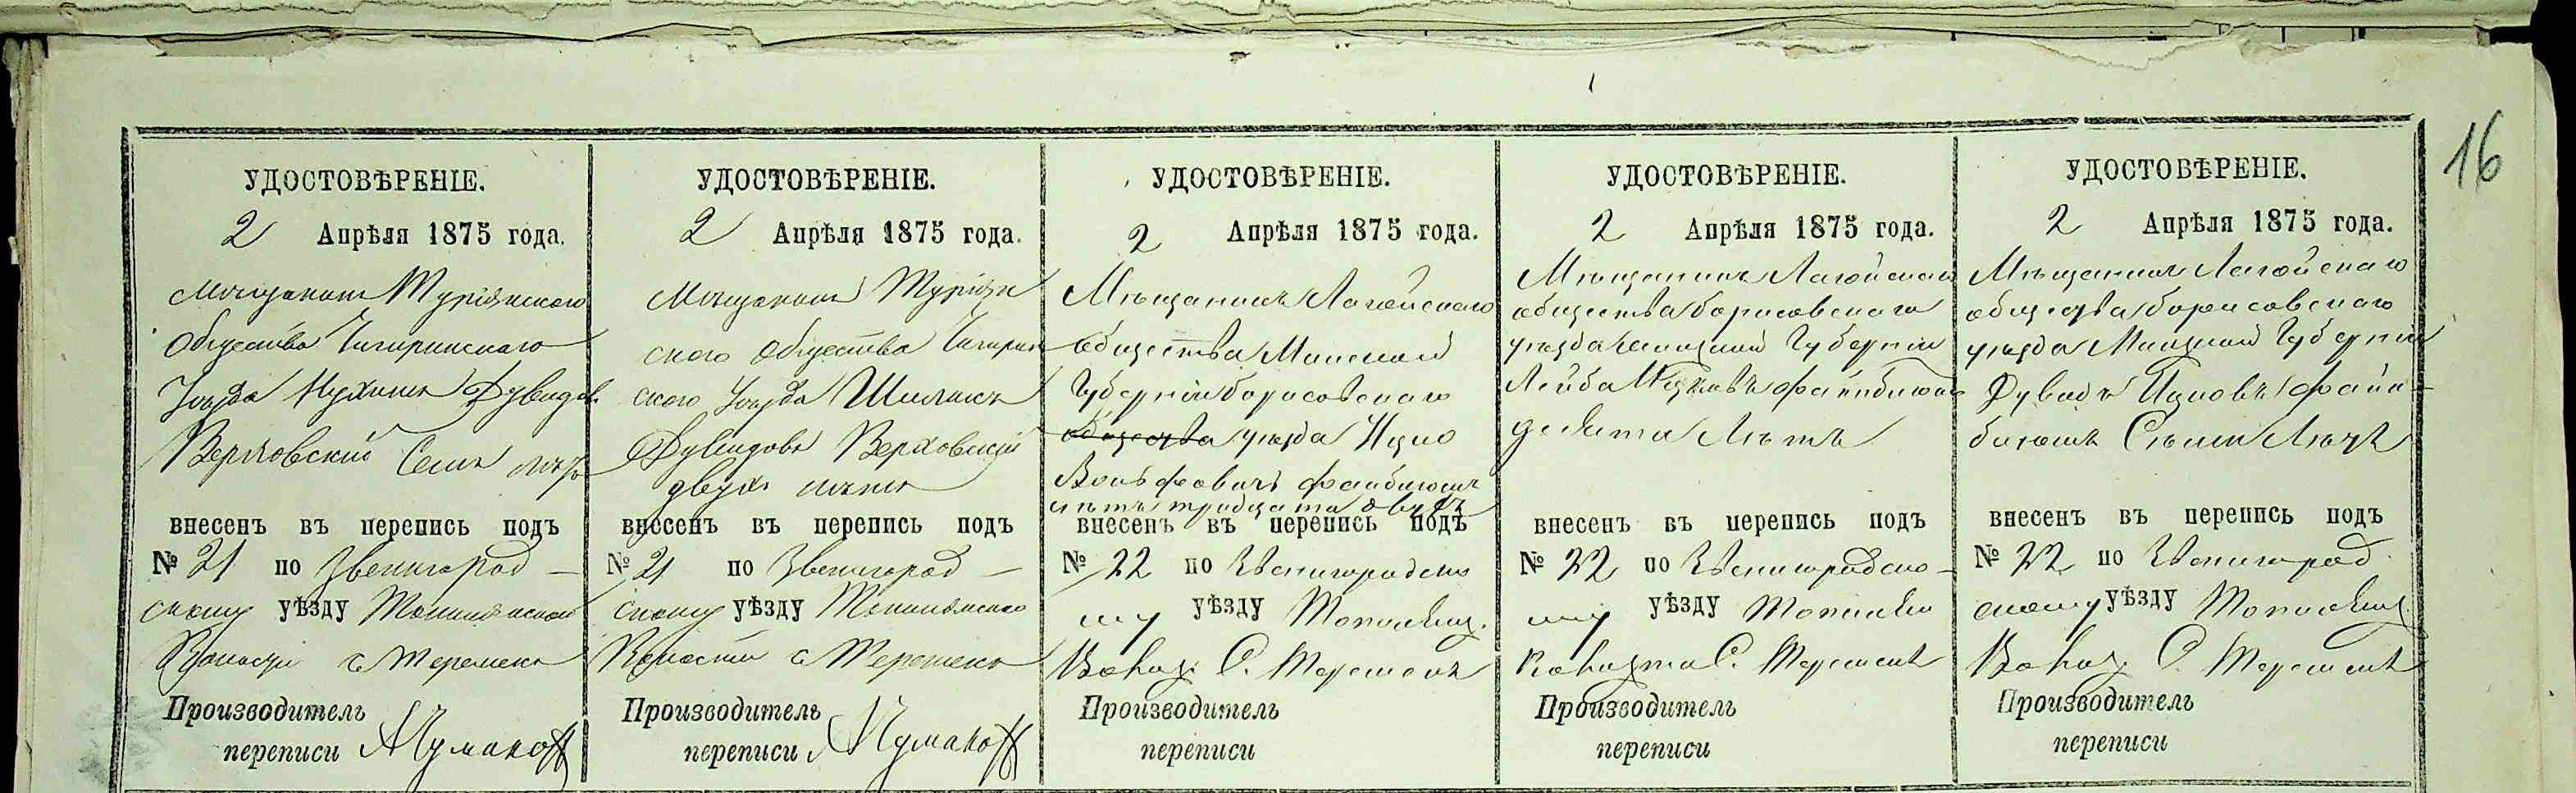 16
УДОСТОВѢРЕНІЕ.
2 Апрѣля 1875 года.
Мѣщанинъ Туріянского
Общества Чигиринского
Уѣзда Нухимъ Дувидов.
Верховский Семи лѣтъ
внесенъ въ перепись подъ
№ 21 по Звенигород –
скому уѣзду
Волости с Теремени
Производитель
переписи АЧумакоff
УДОСТОВѢРЕНІЕ.
2 Апрѣля 1875 года.
Мѣщанинъ Туріян
ского Общества Чигирин
ского Уѣзда Шилихъ
Дувидовъ Верховский
двухъ лѣтъ
внесенъ въ перепись подъ
№ 21 по Звенигород –
скому уѣзду
Волости с Теремени
Производитель
переписи АЧумакоff
УДОСТОВѢРЕНІЕ.
2 Апрѣля 1875 года.
Мѣщанинъ Логойскаго
общества Минской
Губерніи борисовскаго
общества уѣзда Ицко
Вольфовичъ
лѣтъ тридцати двухъ
внесенъ въ перепись подъ
№ 22 по Звенигородско
му уѣзду
С.
Производитель
переписи
УДОСТОВѢРЕНІЕ.
2 Апрѣля 1875 года.
Мѣщанинъ Лагойскаго
общества борисовскаго
уѣзда Губерніи
Лейба Ицковъ
девяти Лѣтъ
внесенъ въ перепись подъ
№ 22 по Звенигородско –
му уѣзду
С.
Производитель
переписи
УДОСТОВѢРЕНІЕ.
2 Апрѣля 1875 года.
Мѣщанинъ Лагойскаго
общества борисовскаго
уѣзда Минской Губерніи
Дувидъ Ицковъ Файн –
Сѣми Лѣтъ
внесенъ въ перепись подъ
№ 22 по Звенигород
скому уѣзду
С.
Производитель
переписи